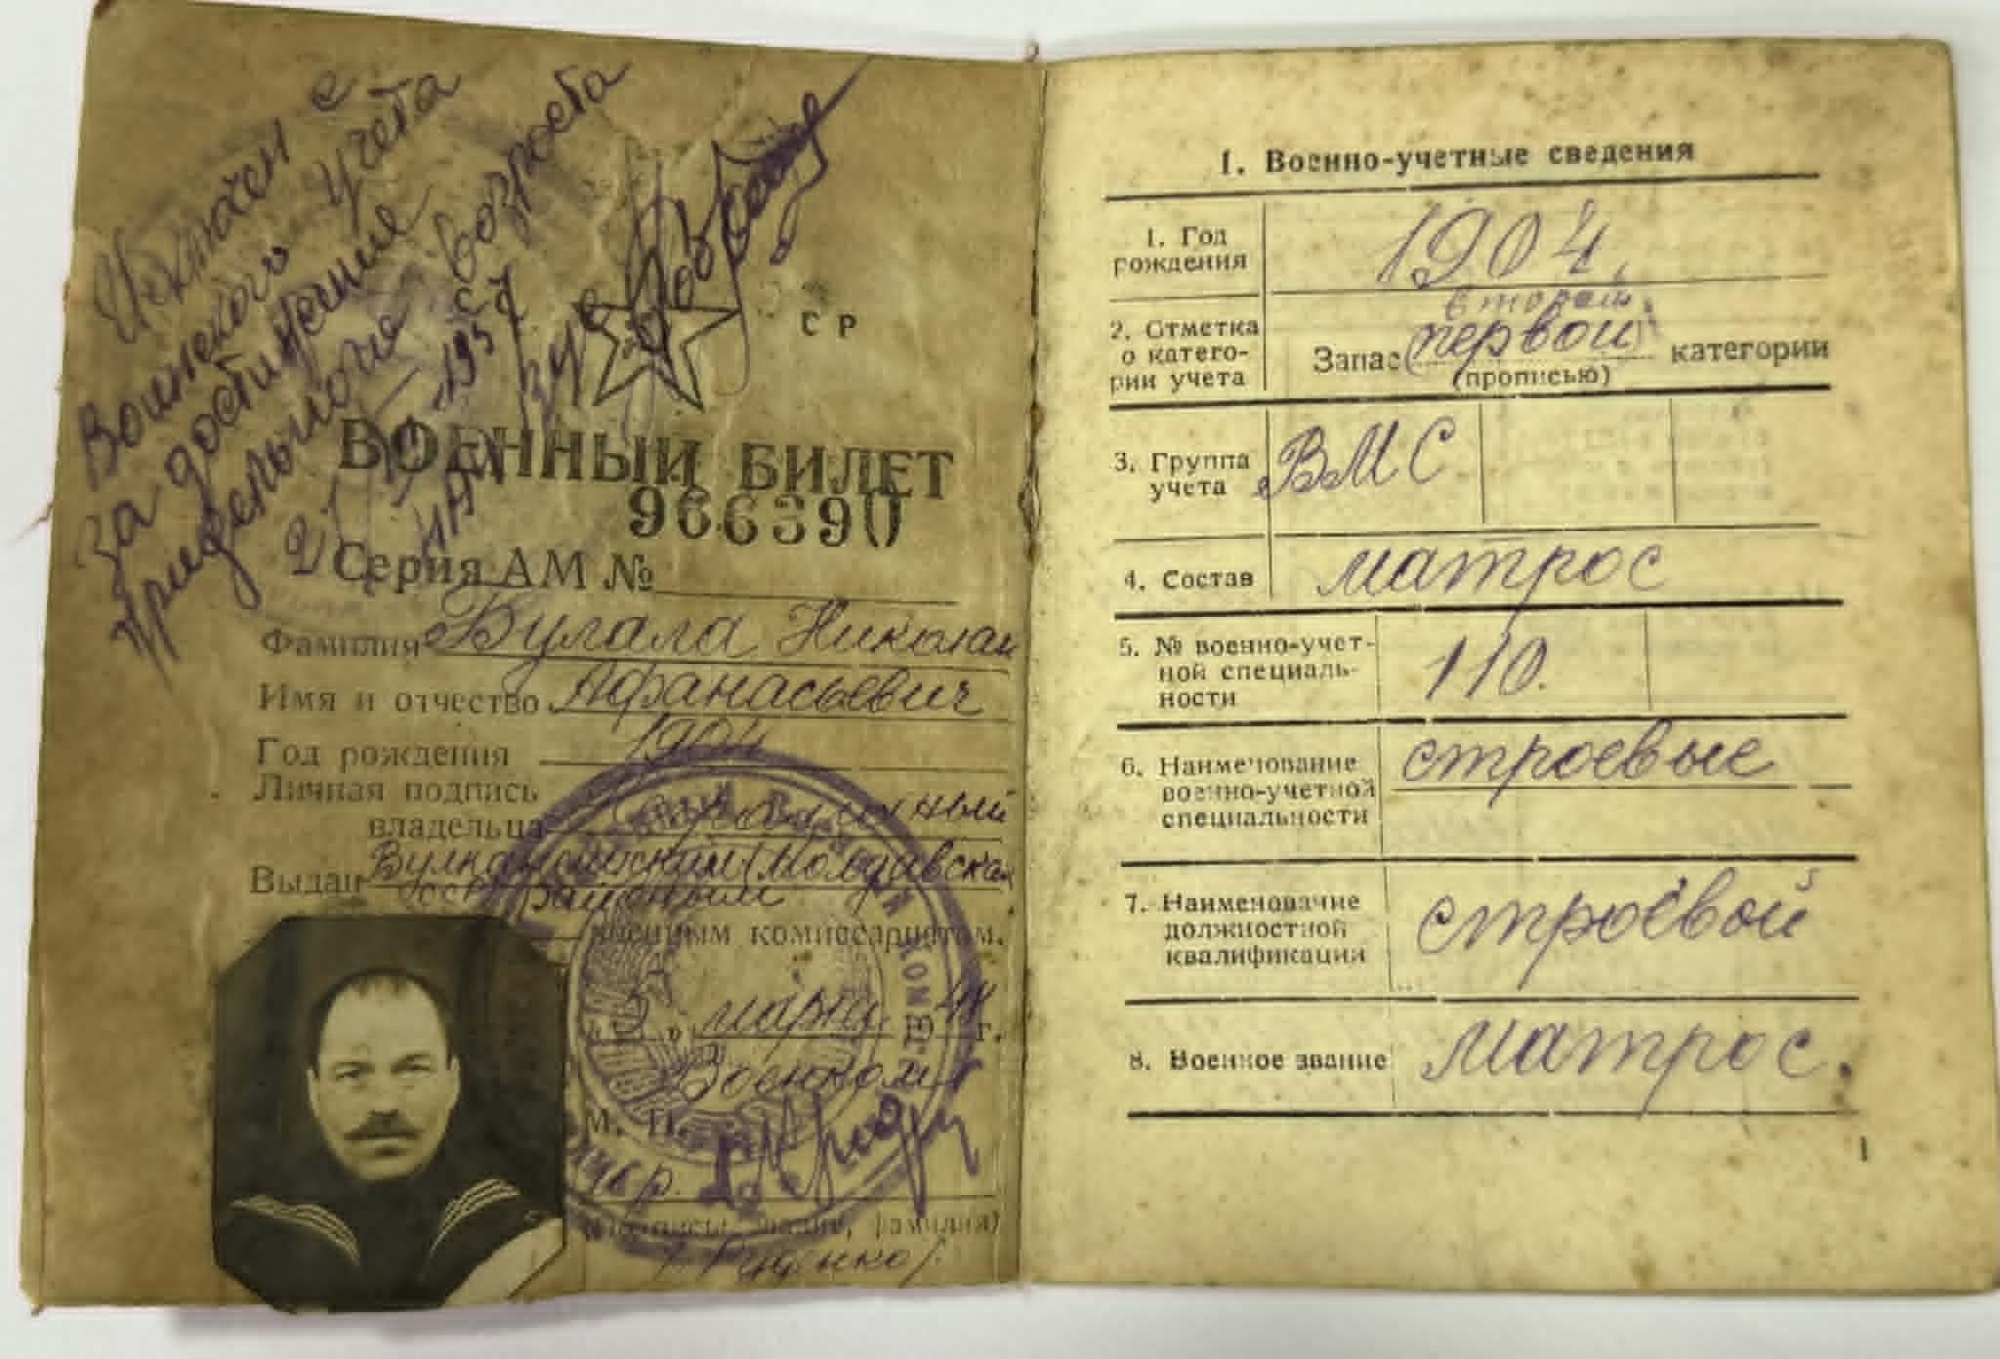 Исключен с
воинского учета
за достижение
предельного возраста
СР
ВОЕННЫЙ БИЛЕТ
966390
Серия АМ №
Фамилия Булала Николай
Имя и отчество Афанасьевич
Год рождения 1904
Личная подпись
владельца
Выдан Вулканештским (Молдавская
ССР) районным
военным комиссариатом.
марта 19 г.
Военком
М. П.
(подпись, звание, фамилия)
1. Военно-учетные сведения
1. Год
рождения 1904
второй
2. Отметка
о катего-
рии учета Запас первой категории
(прописью)
3. Группа
учета ВМС
4. Состав матрос
5. № военно-учет-
ной специаль-
ности 110.
6. Наименование
военно-учетной
специальности строевые
7. Наименование
должностной
квалификации строевой
8. Военное звание матрос.
1